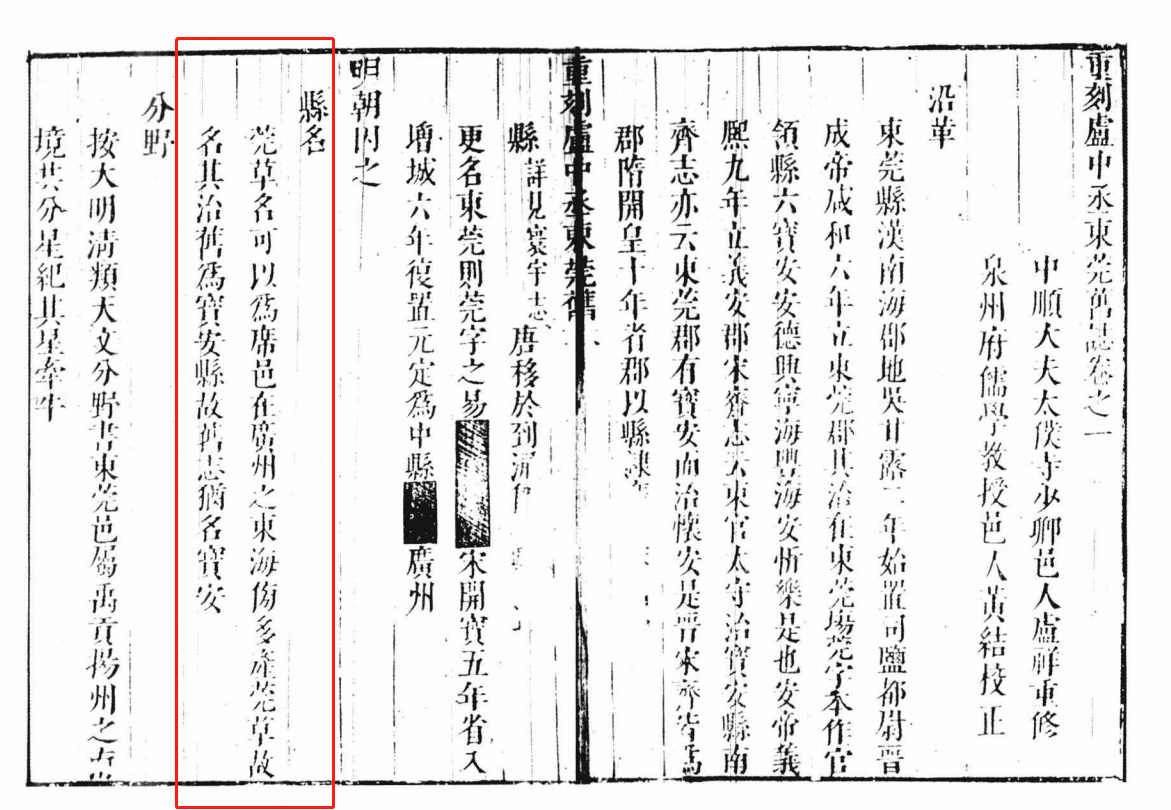 重刻盧中丞東莞舊誌卷之一
中順大夫太僕寺少卿邑人盧祥重修
泉州府儒學教授邑人黃結校正
沿革
東莞縣漢南海郡地吳甘露二年始置司鹽都尉晉
成帝咸和六年立東莞郡其治在東莞場莞字本作官
領縣六寶安安德興寧海豐海安忻樂是也安帝義
熙九年立義安郡宋齊志云東官太守治寶安縣南
齊志亦云東莞郡有寶安而治懷安是晉宋齊皆爲
郡隋開皇十年省郡以縣隸
重刻盧中丞東莞舊
縣詳見寰宇志唐移於到涌
更名東莞則莞字之易宋開寶五年省入
增城六年復置元定爲中縣廣州
明朝因之
縣名
莞草名可以爲席邑在廣州之東海傍多產莞草故
名其治舊爲寶安縣故舊志猶名寶安
分野
按大明清類天文分野書東莞邑屬禹貢揚州之
境共分星紀其星牽牛